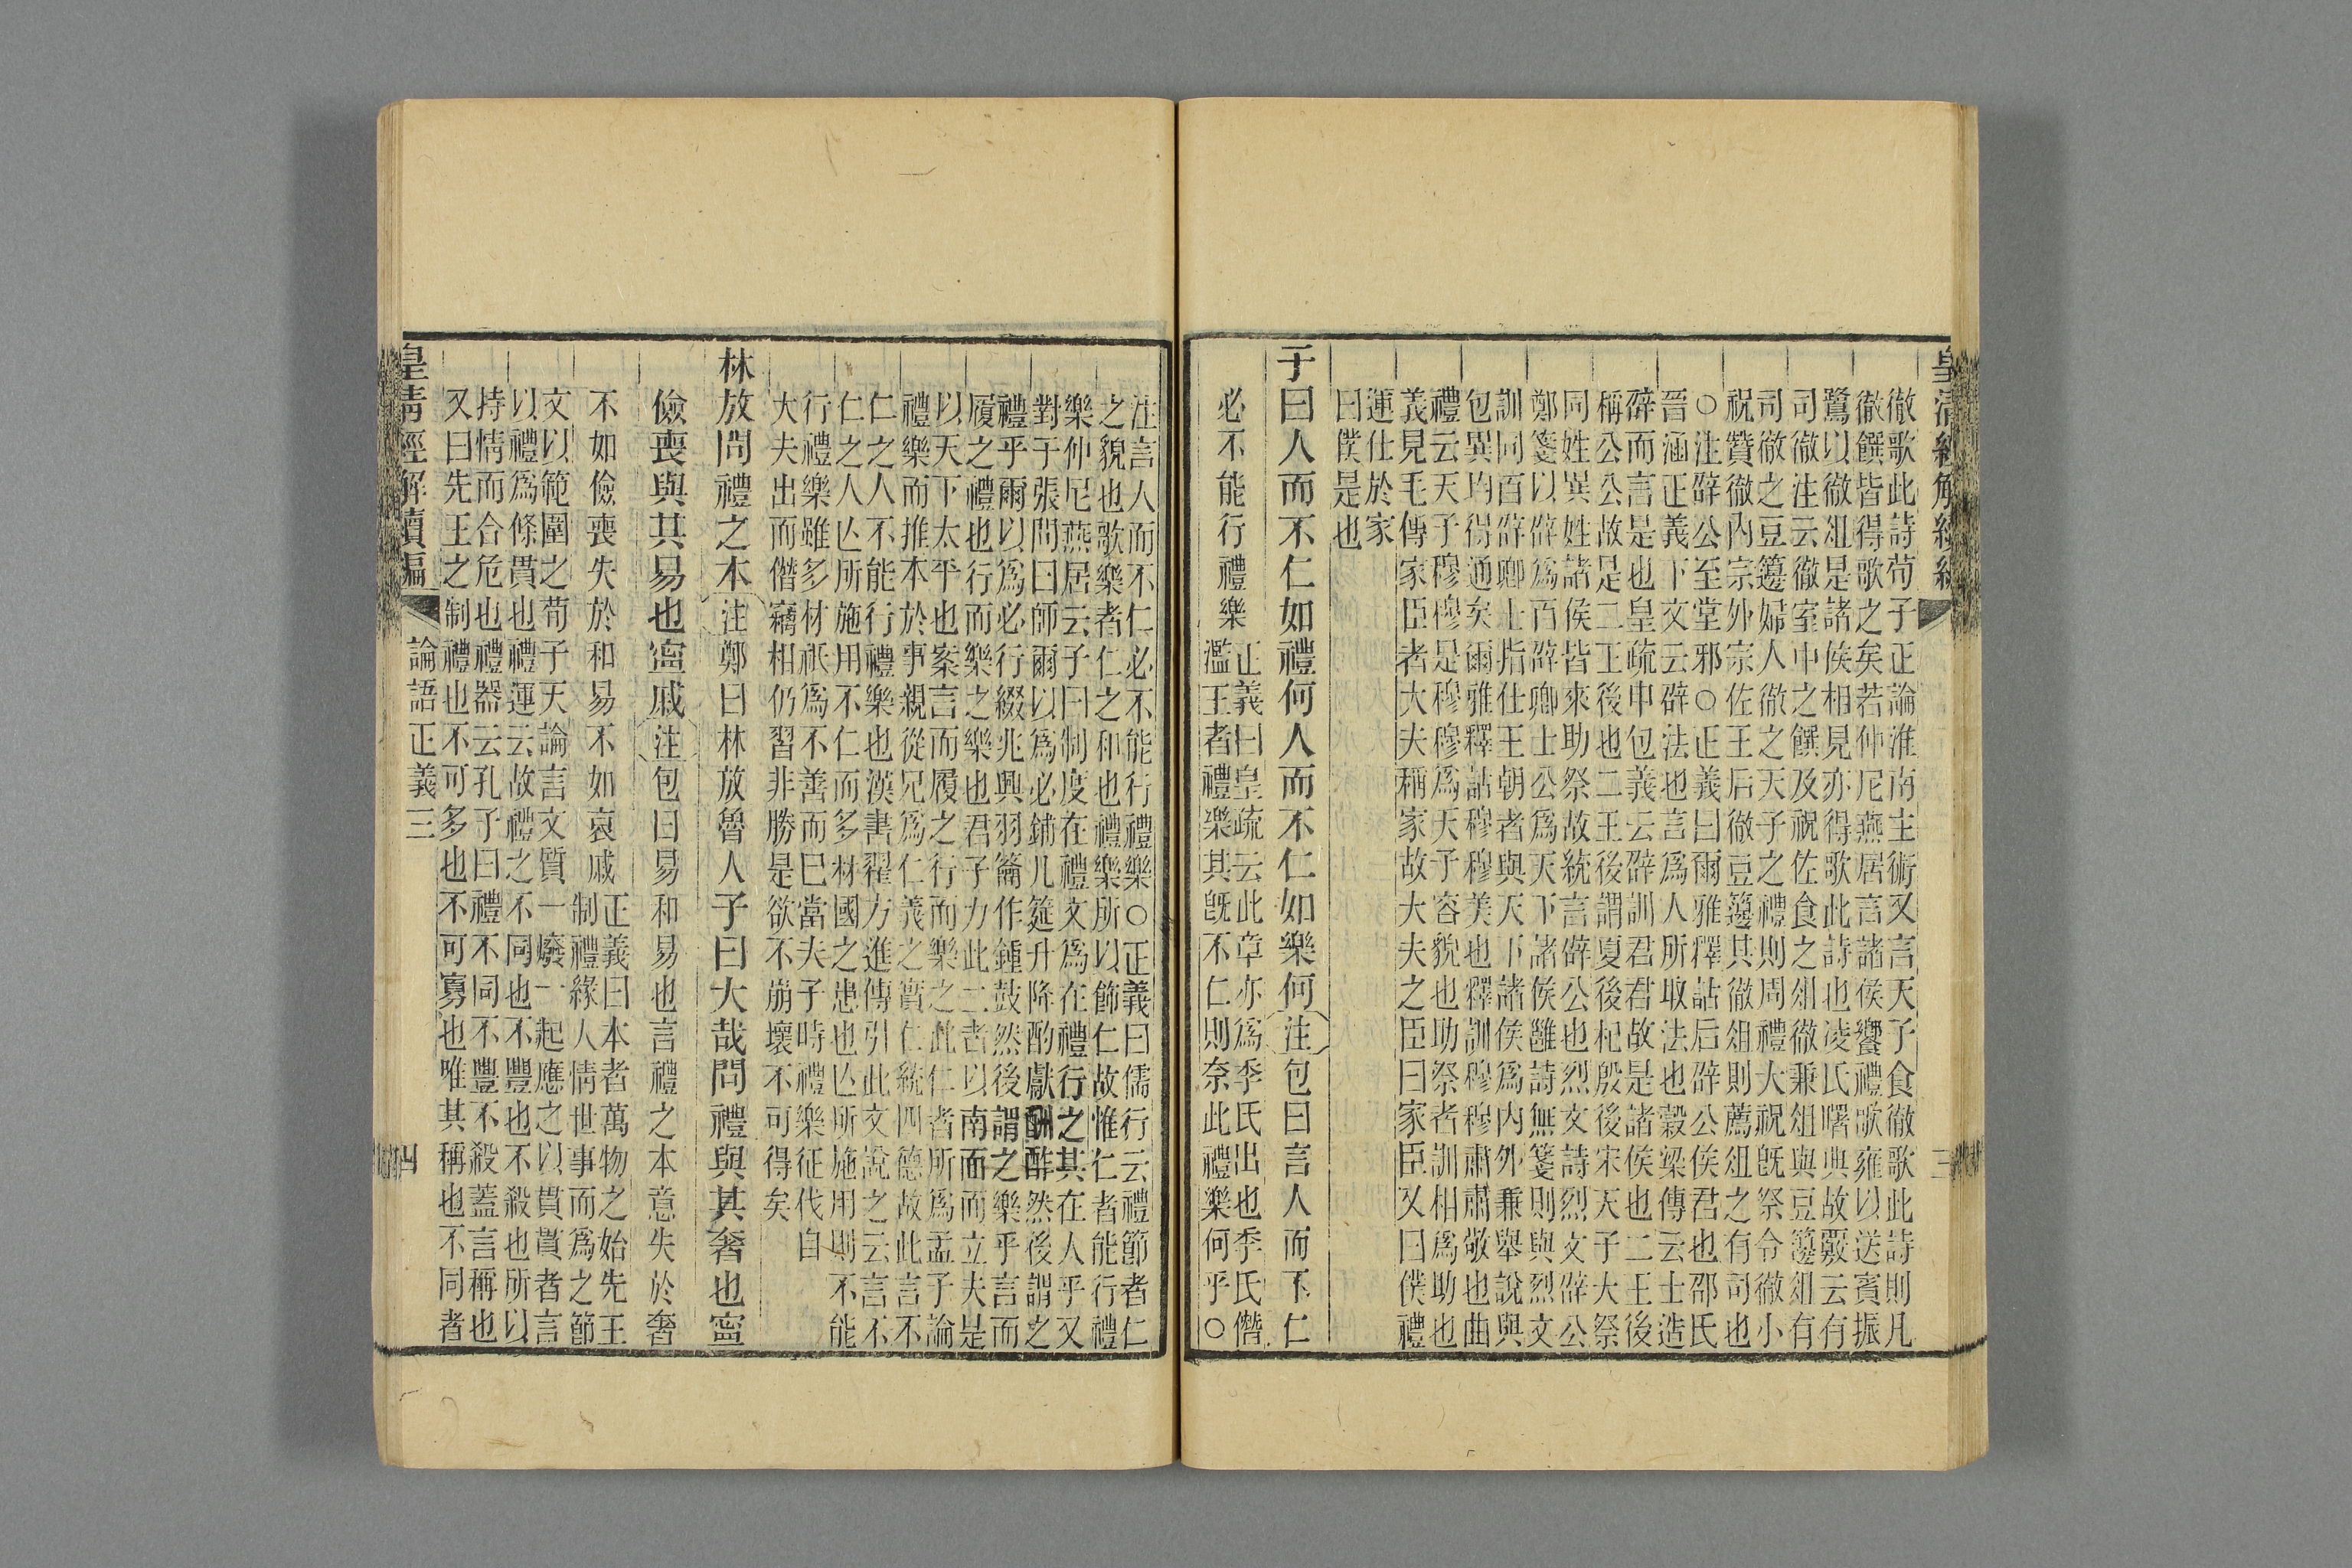 徹歌此詩荀子正論淮南主術又言天子食徹歌此詩則凡
徹饌皆得歌之矣若仲尼燕居言諸侯饗禮歌雍以送賓振
鷺以徹俎是諸侯相見亦得歌此詩也凌氏曙典故覈云有
司徹注云徹室中之饌及祝佐食之俎徹兼俎與豆籩俎有
司徹之豆籩婦人徹之天子之禮則周禮大祝既祭令徹小
祝贊徹內宗外宗佐王后徹豆籩其徹俎則薦俎之有司也
○注辟公至堂邪○正義曰爾雅釋詁后辟公侯君也邵氏
晉涵正義下文云辟法也言爲人所取法也穀梁傳云士造
辟而言是也皇疏申包義云辟訓君君故是諸侯也二王後
稱公公故是二王後也二王後謂夏後杞殷後宋天子大祭
同姓異姓諸侯皆來助祭故統言辟公也烈文詩烈文辟公
鄭箋以辟爲百辟卿士公爲天下諸侯雝詩無箋則與烈文
訓同百辟卿士指仕王朝者與天下諸侯爲內外兼舉說與
包異均得通矣爾雅釋詁穆穆美也釋訓穆穆肅肅敬也曲
禮云天子穆穆是穆穆爲天子容貌也助祭者訓相爲助也
義見毛傳家臣者大夫稱家故大夫之臣曰家臣又曰僕禮
運仕於家
曰僕是也
子曰人而不仁如禮何人而不仁如樂何注包曰言人而不仁
必不能行禮樂
正義曰皇疏云此章亦爲季氏出也季氏僭
濫王者禮樂其旣不仁則奈此禮樂何乎○
注言人而不仁必不能行禮樂○正義曰儒行云禮節者仁
之貌也歌樂者仁之和也禮樂所以飾仁故惟仁者能行禮
樂仲尼燕居云子曰制度在禮文爲在禮行之其在人乎又
對子張問曰師爾以爲必鋪几筵升降酌獻酬酢然後謂之
禮乎爾以爲必行綴兆興羽籥作鍾鼓然後謂之樂乎言而
履之禮也行而樂之樂也君子力此二者以南面而立夫是
以天下太平也案言而履之行而樂之此仁者所爲孟子論
禮樂而推本於事親從兄爲仁義之實仁統四德故此言不
仁之人不能行禮樂也漢書翟方進傳引此文說之云言不
仁之人亾所施用不仁而多材國之患也亾所施用則不能
行禮樂雖多材祇爲不善而已當夫子時禮樂征伐自
大夫出而僭竊相仍習非勝是欲不崩壞不可得矣
林放問禮之本注鄭曰林放魯人子曰大哉問禮與其奢也寍
儉喪與其易也寍戚注包曰易和易也言禮之本意失於奢
不如儉喪失於和易不如哀戚
正義曰本者萬物之始先王
制禮緣人情世事而爲之節
文以範圍之荀子天論言文質一廢一起應之以貫貫者言
以禮爲條貫也禮運云故禮之不同也不豐也不殺也所以
持情而合危也禮器云孔子曰禮不同不豐不殺蓋言稱也
又曰先王之制禮也不可多也不可寡也唯其稱也不同者
皇淸經解續編
論語正義三
四